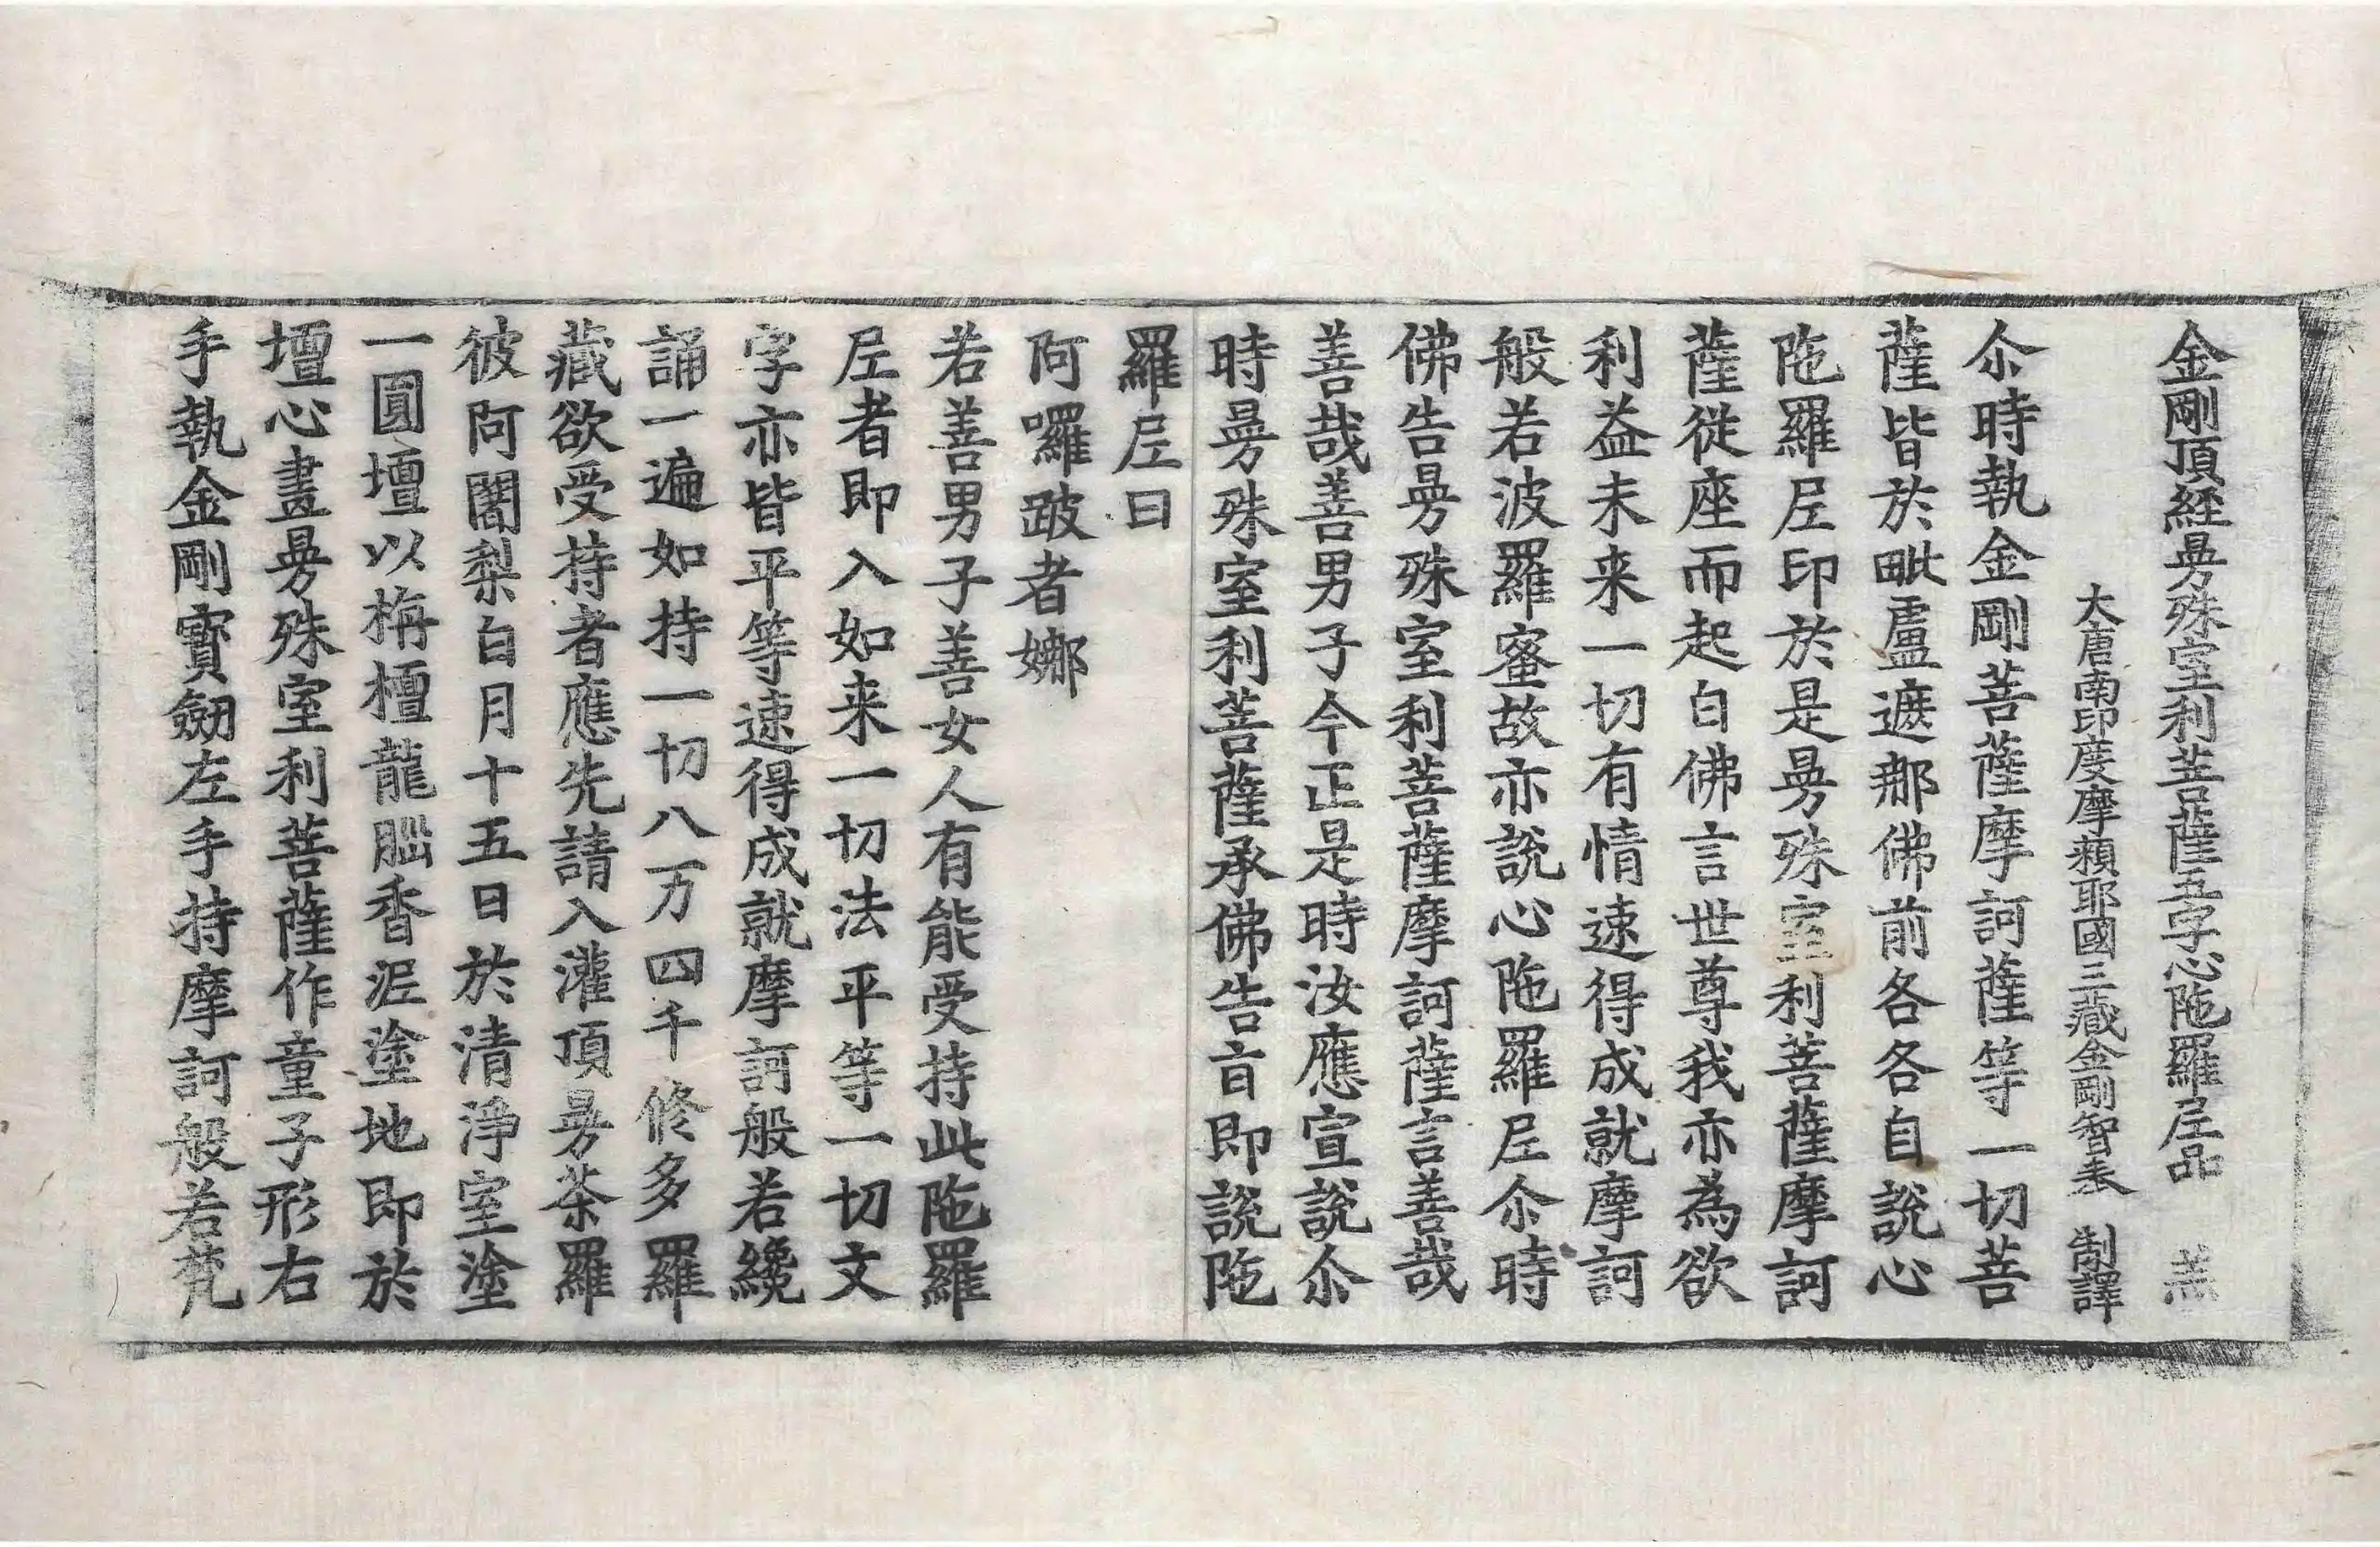 金剛頂經曼殊室利菩薩五字心陁羅尼品 羔
大唐南印度摩頼耶國三藏金剛智奉 制譯
尒時執金剛菩薩摩訶薩等一切菩
薩皆於毗盧遮那佛前各各自說心
陁羅尼印於是曼殊室利菩薩摩訶
薩從座而起白佛言世尊我亦為欲
利益未来一切有情速得成就摩訶
般若波羅蜜故亦說心陁羅尼尒時
佛告曼殊室利菩薩摩訶薩言善哉
善哉善男子今正是時汝應宣說尒
時曼殊室利菩薩承佛告旨即說陁
羅尼曰
阿囉跛者娜
若善男子善女人有能受持此陁羅
尼者即入如来一切法平等一切文
字亦皆平等速得成就摩訶般若纔
誦一遍如持一切八万四千修多羅
藏欲受持者應先請入灌頂曼荼羅
彼阿闍梨白月十五日於清淨室塗
一圓壇以栴檀龍腦香泥塗地即於
壇心畫曼殊室利菩薩作童子形右
手執金剛寶劒左手持摩訶般若梵